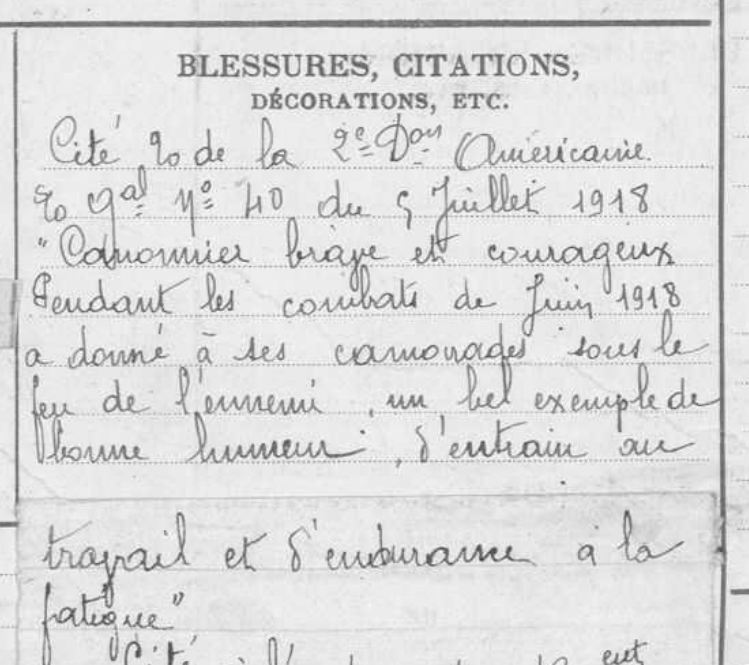 BLESSURES, CITATIONS,
DÉCORATIONS, ETC.
Cité de la 2e Don Américaine.
gal No 40 du 5 Juillet 1918
"Canonnier brave et courageux
Pendant les combats de Juin 1918
a donné à ses camarades sous le
feu de l'ennemi, un bel exemple de
bonne humeur, d'entrain au
travail et d'endurance à la
fatigue"
Cité à l'